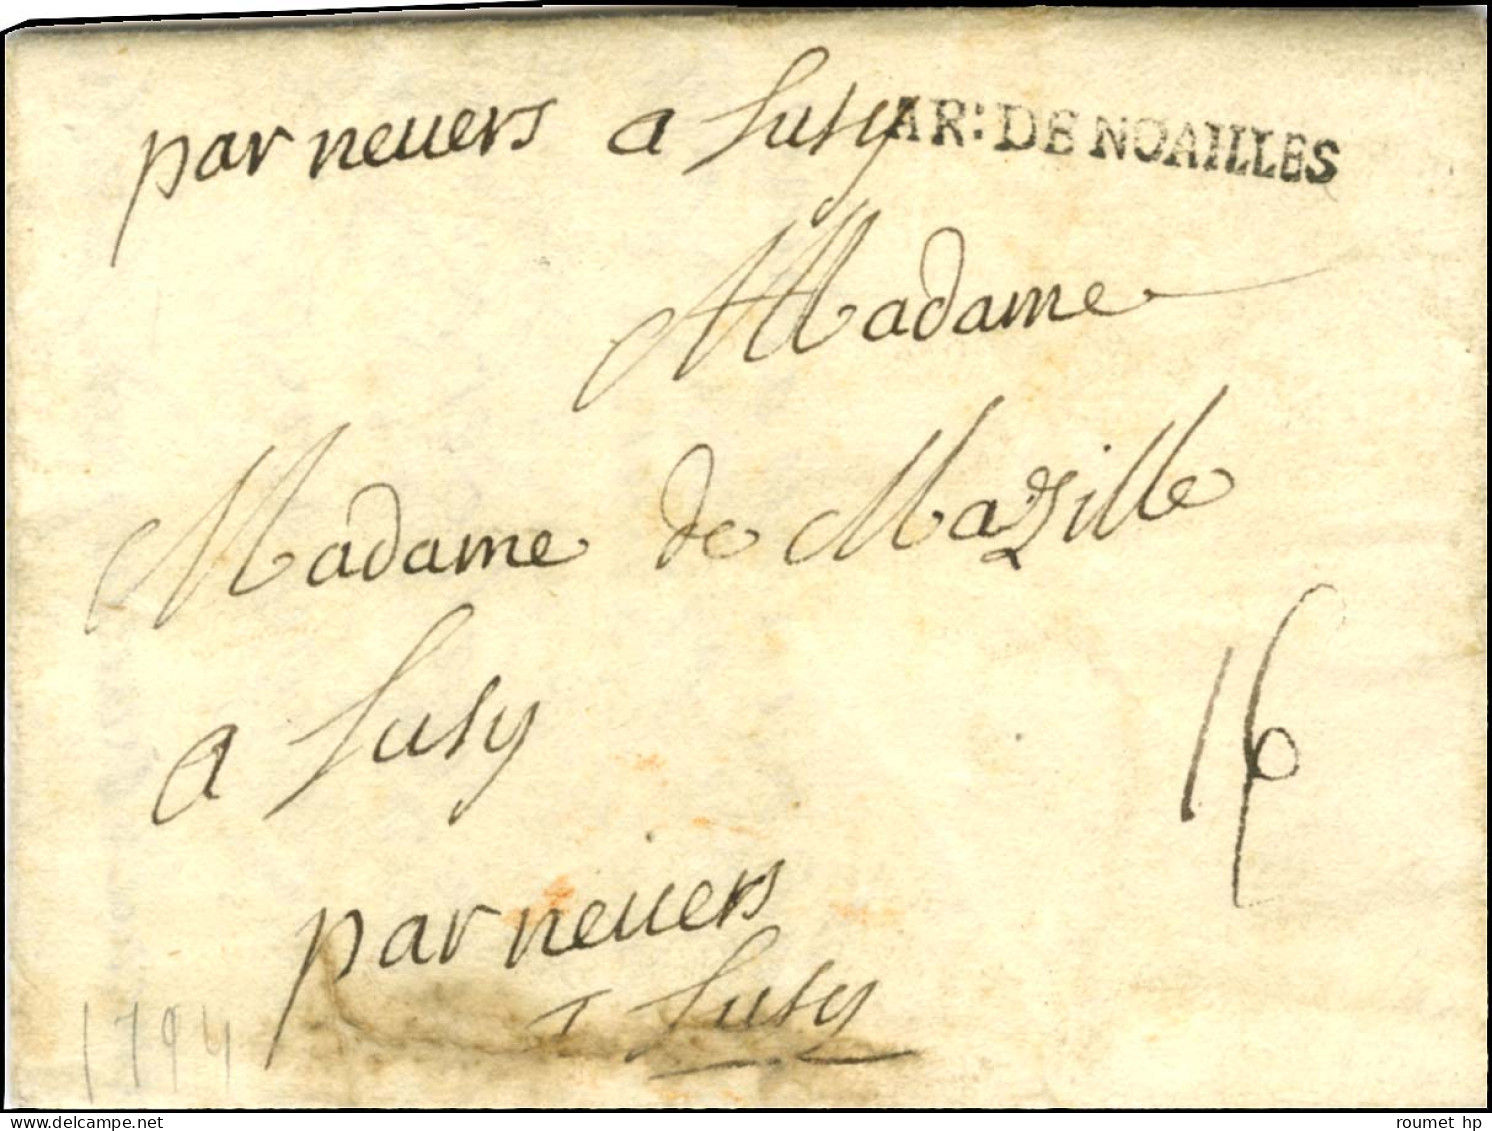 par neuers a Lusy
AR: DE NOAILLES
Madame
Madame de Mazille
a Lusy
16
par neuers
a Lusy
1794
delcampe.net
roumet hp